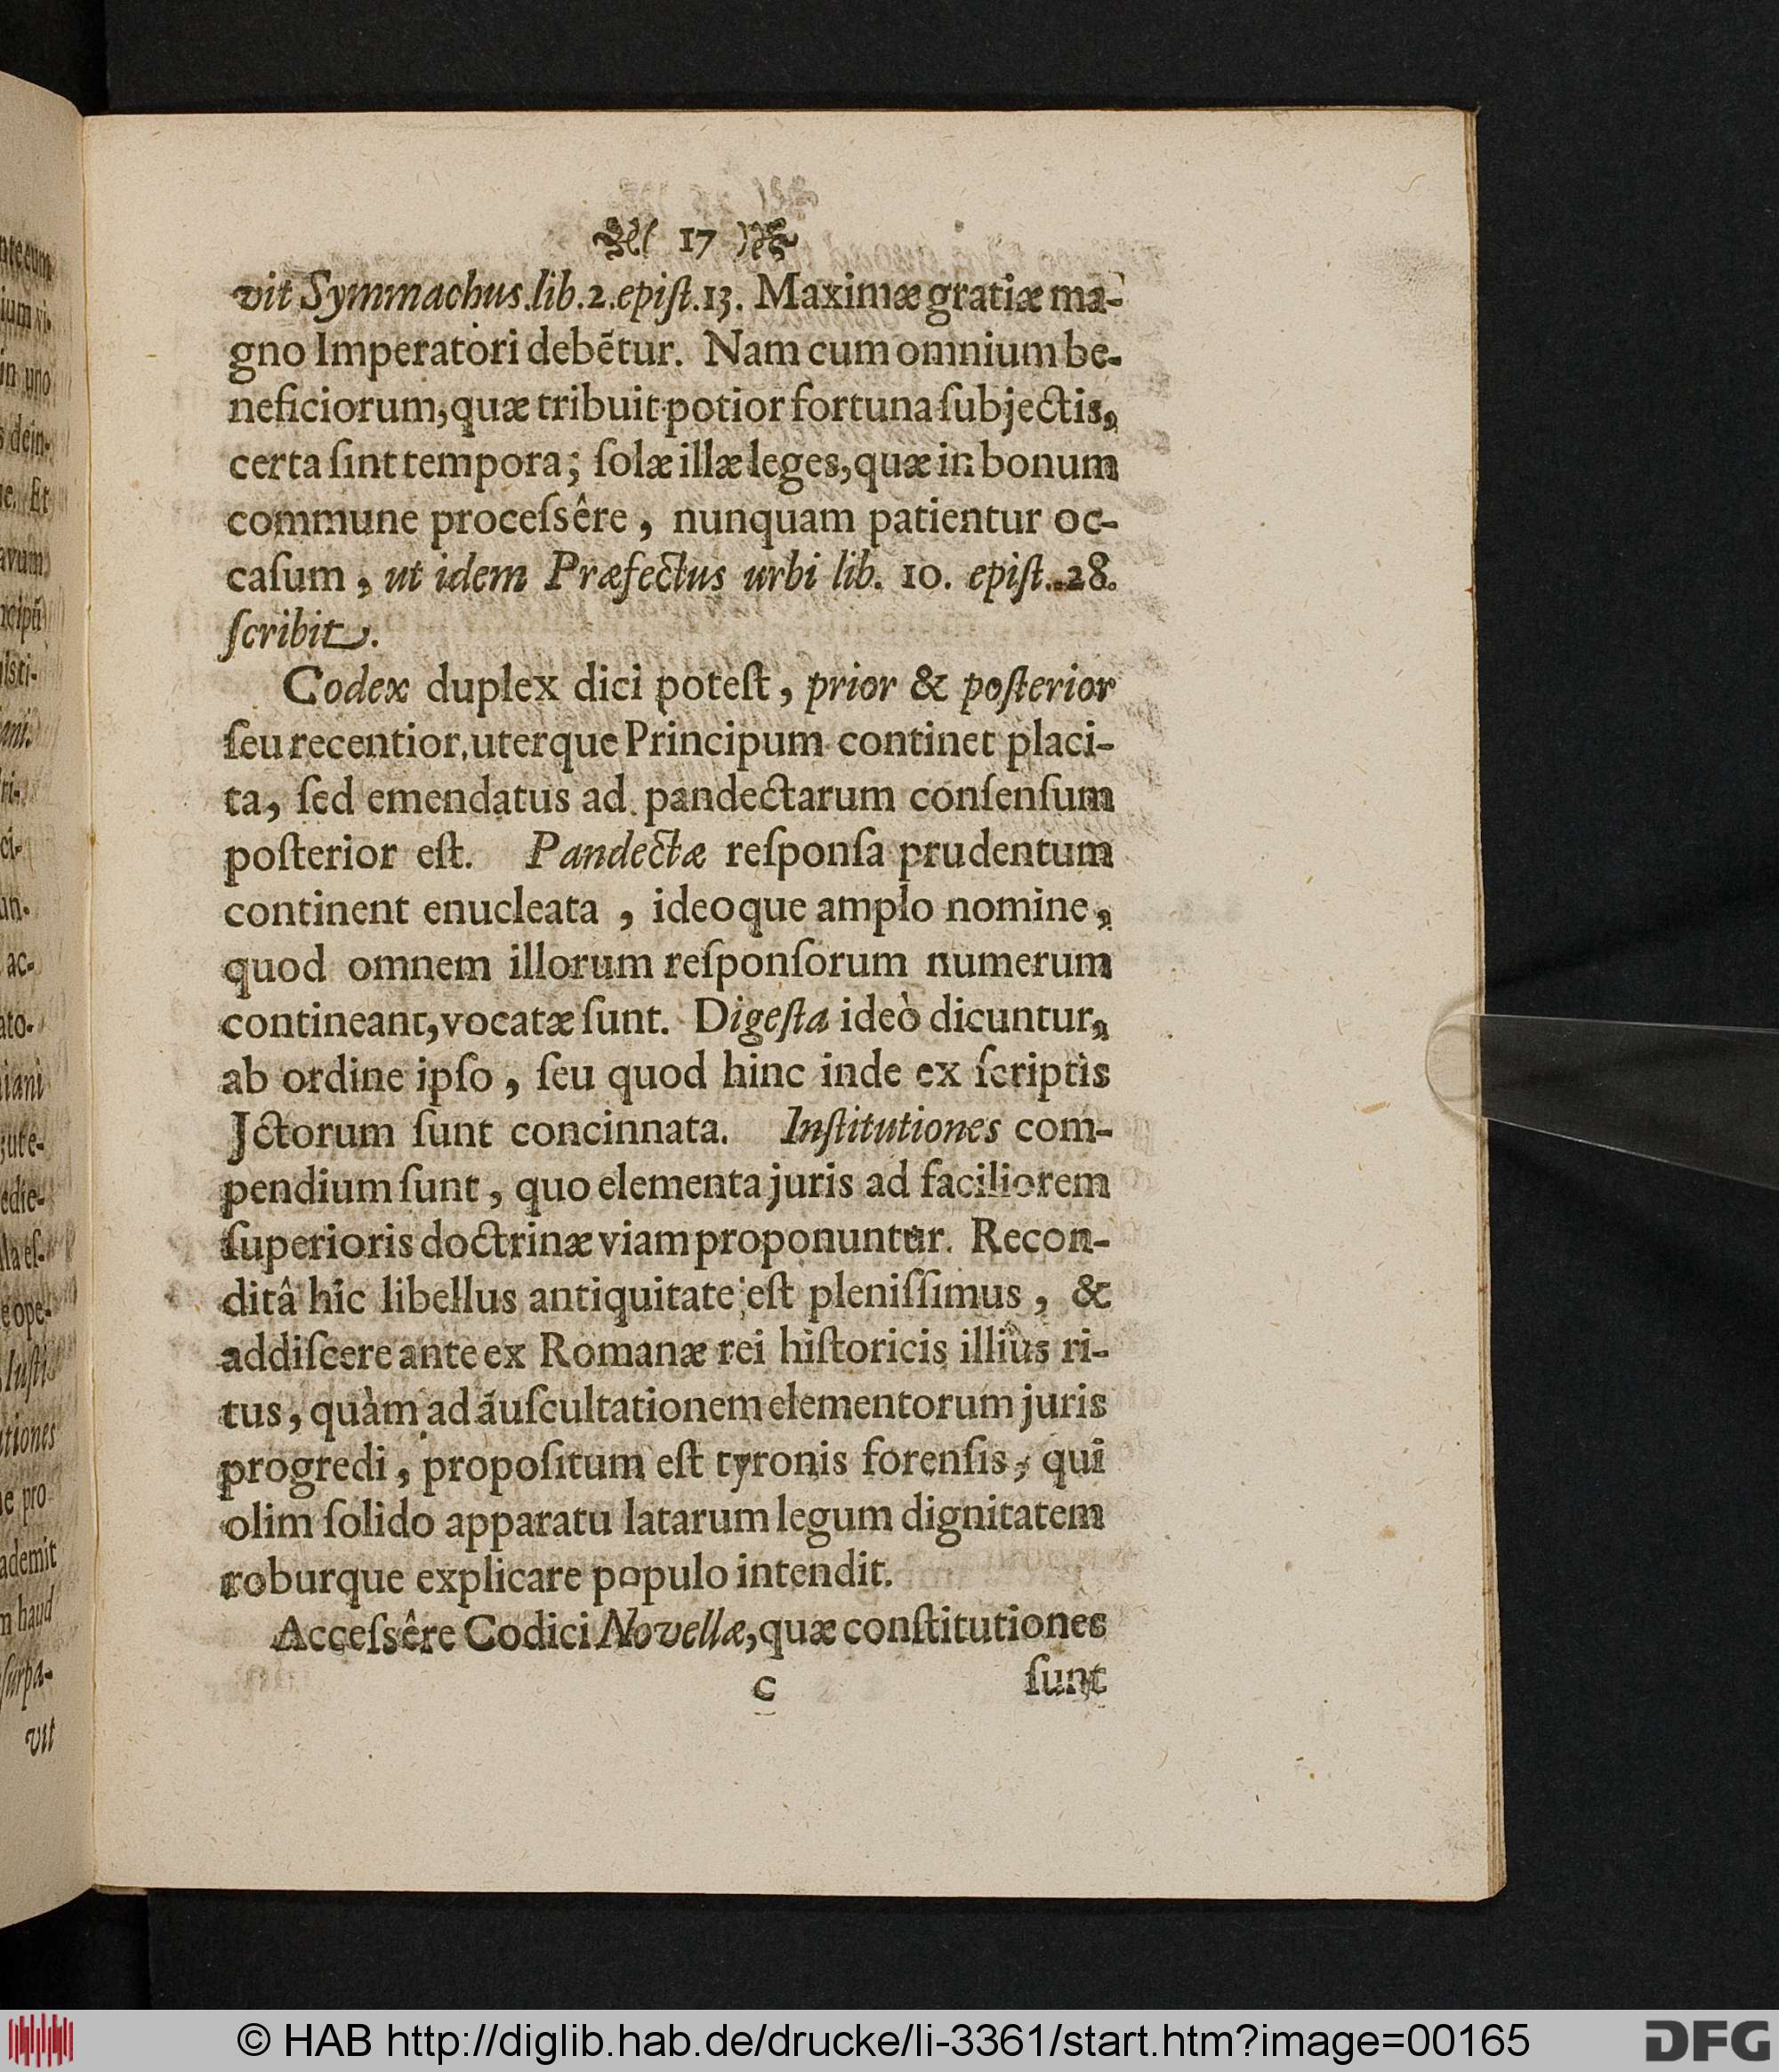 17
vit Symmachus.lib.2.epiſt.13. Maximæ gratiæ ma-
gno Imperatori debẽtur. Nam cum omnium be-
neficiorum, quæ tribuit potior fortuna ſubjectis,
certa ſint tempora; ſolæ illæ leges, quæ in bonum
commune proceſsêre, nunquam patientur oc-
caſum, ut idem Præfectus urbi lib. 10. epiſt. 28.
ſcribit.
Codex duplex dici poteſt, prior & poſterior
ſeu recentior, uterque Principum continet placi-
ta, ſed emendatus ad pandectarum conſenſum
poſterior eſt. Pandectæ reſponſa prudentum
continent enucleata, ideoque amplo nomine,
quod omnem illorum reſponſorum numerum
contineant, vocatæ ſunt. Digeſta ideò dicuntur,
ab ordine ipſo, ſeu quod hinc inde ex ſcriptis
Jctorum ſunt concinnata. Inſtitutiones com-
pendium ſunt, quo elementa juris ad faciliorem
ſuperioris doctrinæ viam proponuntur. Recon-
ditâ hîc libellus antiquitate eſt pleniſſimus, &
addiſcere ante ex Romanæ rei hiſtoricis illius ri-
tus, quàm ad auſcultationem elementorum juris
progredi, propoſitum eſt tyronis forenſis, qui
olim ſolido apparatu latarum legum dignitatem
roburque explicare populo intendit.
Acceſsêre Codici Novellæ, quæ conſtitutiones
C ſunt
in uno
dein-
Et
ac-
iani
pro
ademit
haud
vit
© HAB http://diglib.hab.de/drucke/li-3361/start.htm?image=00165
DFG